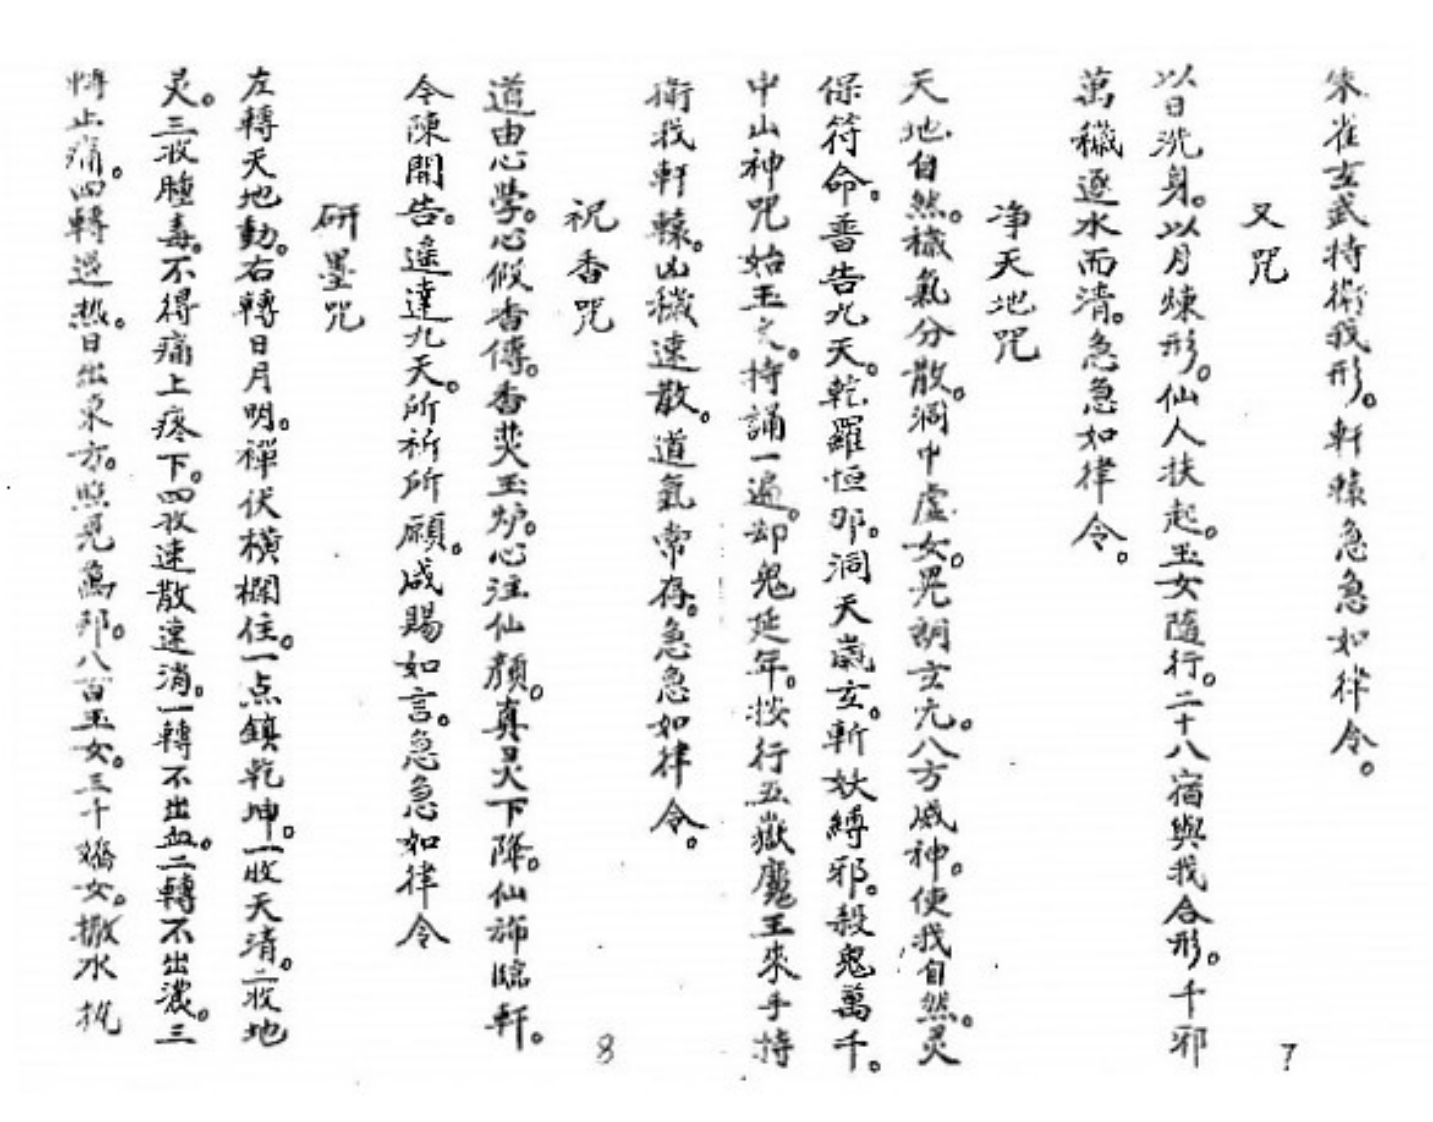 朱雀玄武持衛我形。軒轅急急如律令。
又咒
以日洗身。以月煉形。仙人扶起。玉女隨行。二十八宿與我合形。千邪
萬穢逐水而清。急急如律令。
净天地咒
天地自然。穢氣分散。洞中虛女。晃朗玄元。八方威神。使我自然。灵
保符命。普告九天。乾羅恒那。洞天崴玄。斬妖縛邪。殺鬼萬千。
中山神咒始玉文。持誦一遍。却鬼延年。按行五嶽魔王來手持
衛我軒轅。凶穢速散。道氣常存。急急如律令。
祝香咒
道由心學。心假香傳。香焚玉炉。心注仙顏。真灵下降。仙斾臨軒。
令陳開告。遙達九天。所祈所願。咸賜如言。急急如律令
研墨咒
左轉天地動。右轉日月明。禪伏橫欄住。一点鎮乾坤。一收天清。二收地
灵。三收腫毒。不得痛上疼下。四收速散速消。一轉不出血。二轉不出濃。三
轉止痛。四轉退热。日出東方。照見萬邦。八百玉女。三十嬌女。撒水
7
8